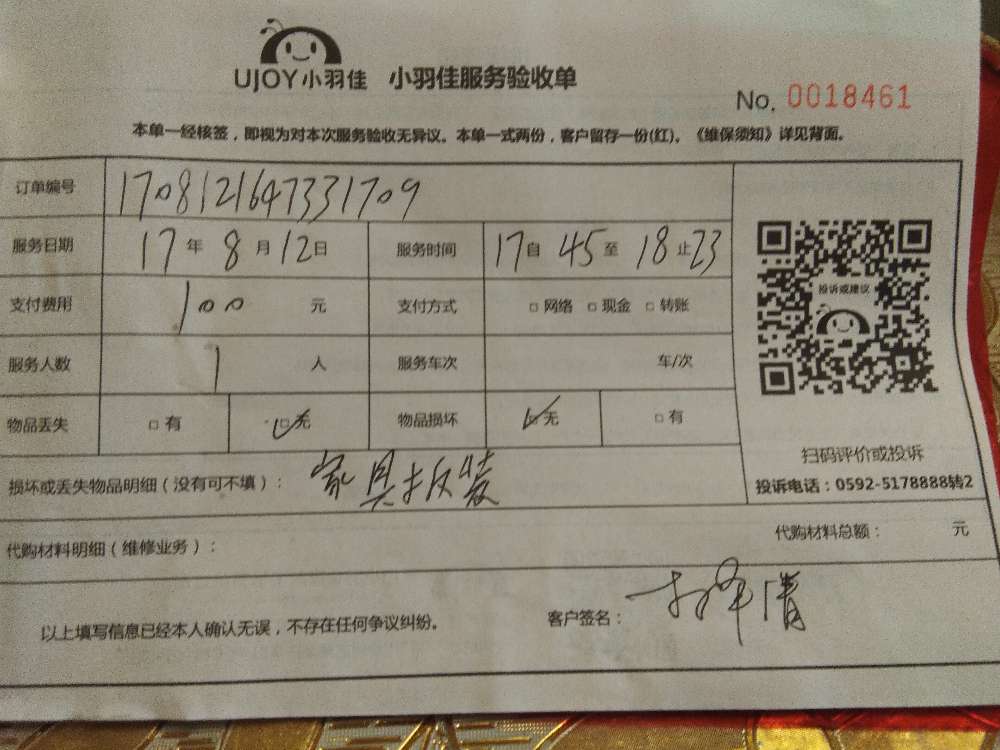 UJOY小羽佳 小羽佳服务验收单
No. 0018461
本单一经核签，即视为对本次服务验收无异议。本单一式两份，客户留存一份(红)。《维保须知》详见背面。
订单编号 1708121647331709
服务日期 17年8月12日 服务时间 17自45至18止23
支付费用 100 元 支付方式 □网络 □现金 □转账
投诉或建议
服务人数 1 人 服务车次 车/次
物品丢失 □有 ☑无 物品损坏 ☑无 □有
扫码评价或投诉
损坏或丢失物品明细（没有可不填）： 家具拆装
投诉电话：0592-5178888转2
代购材料明细（维修业务）： 代购材料总额： 元
以上填写信息已经本人确认无误，不存在任何争议纠纷。 客户签名：